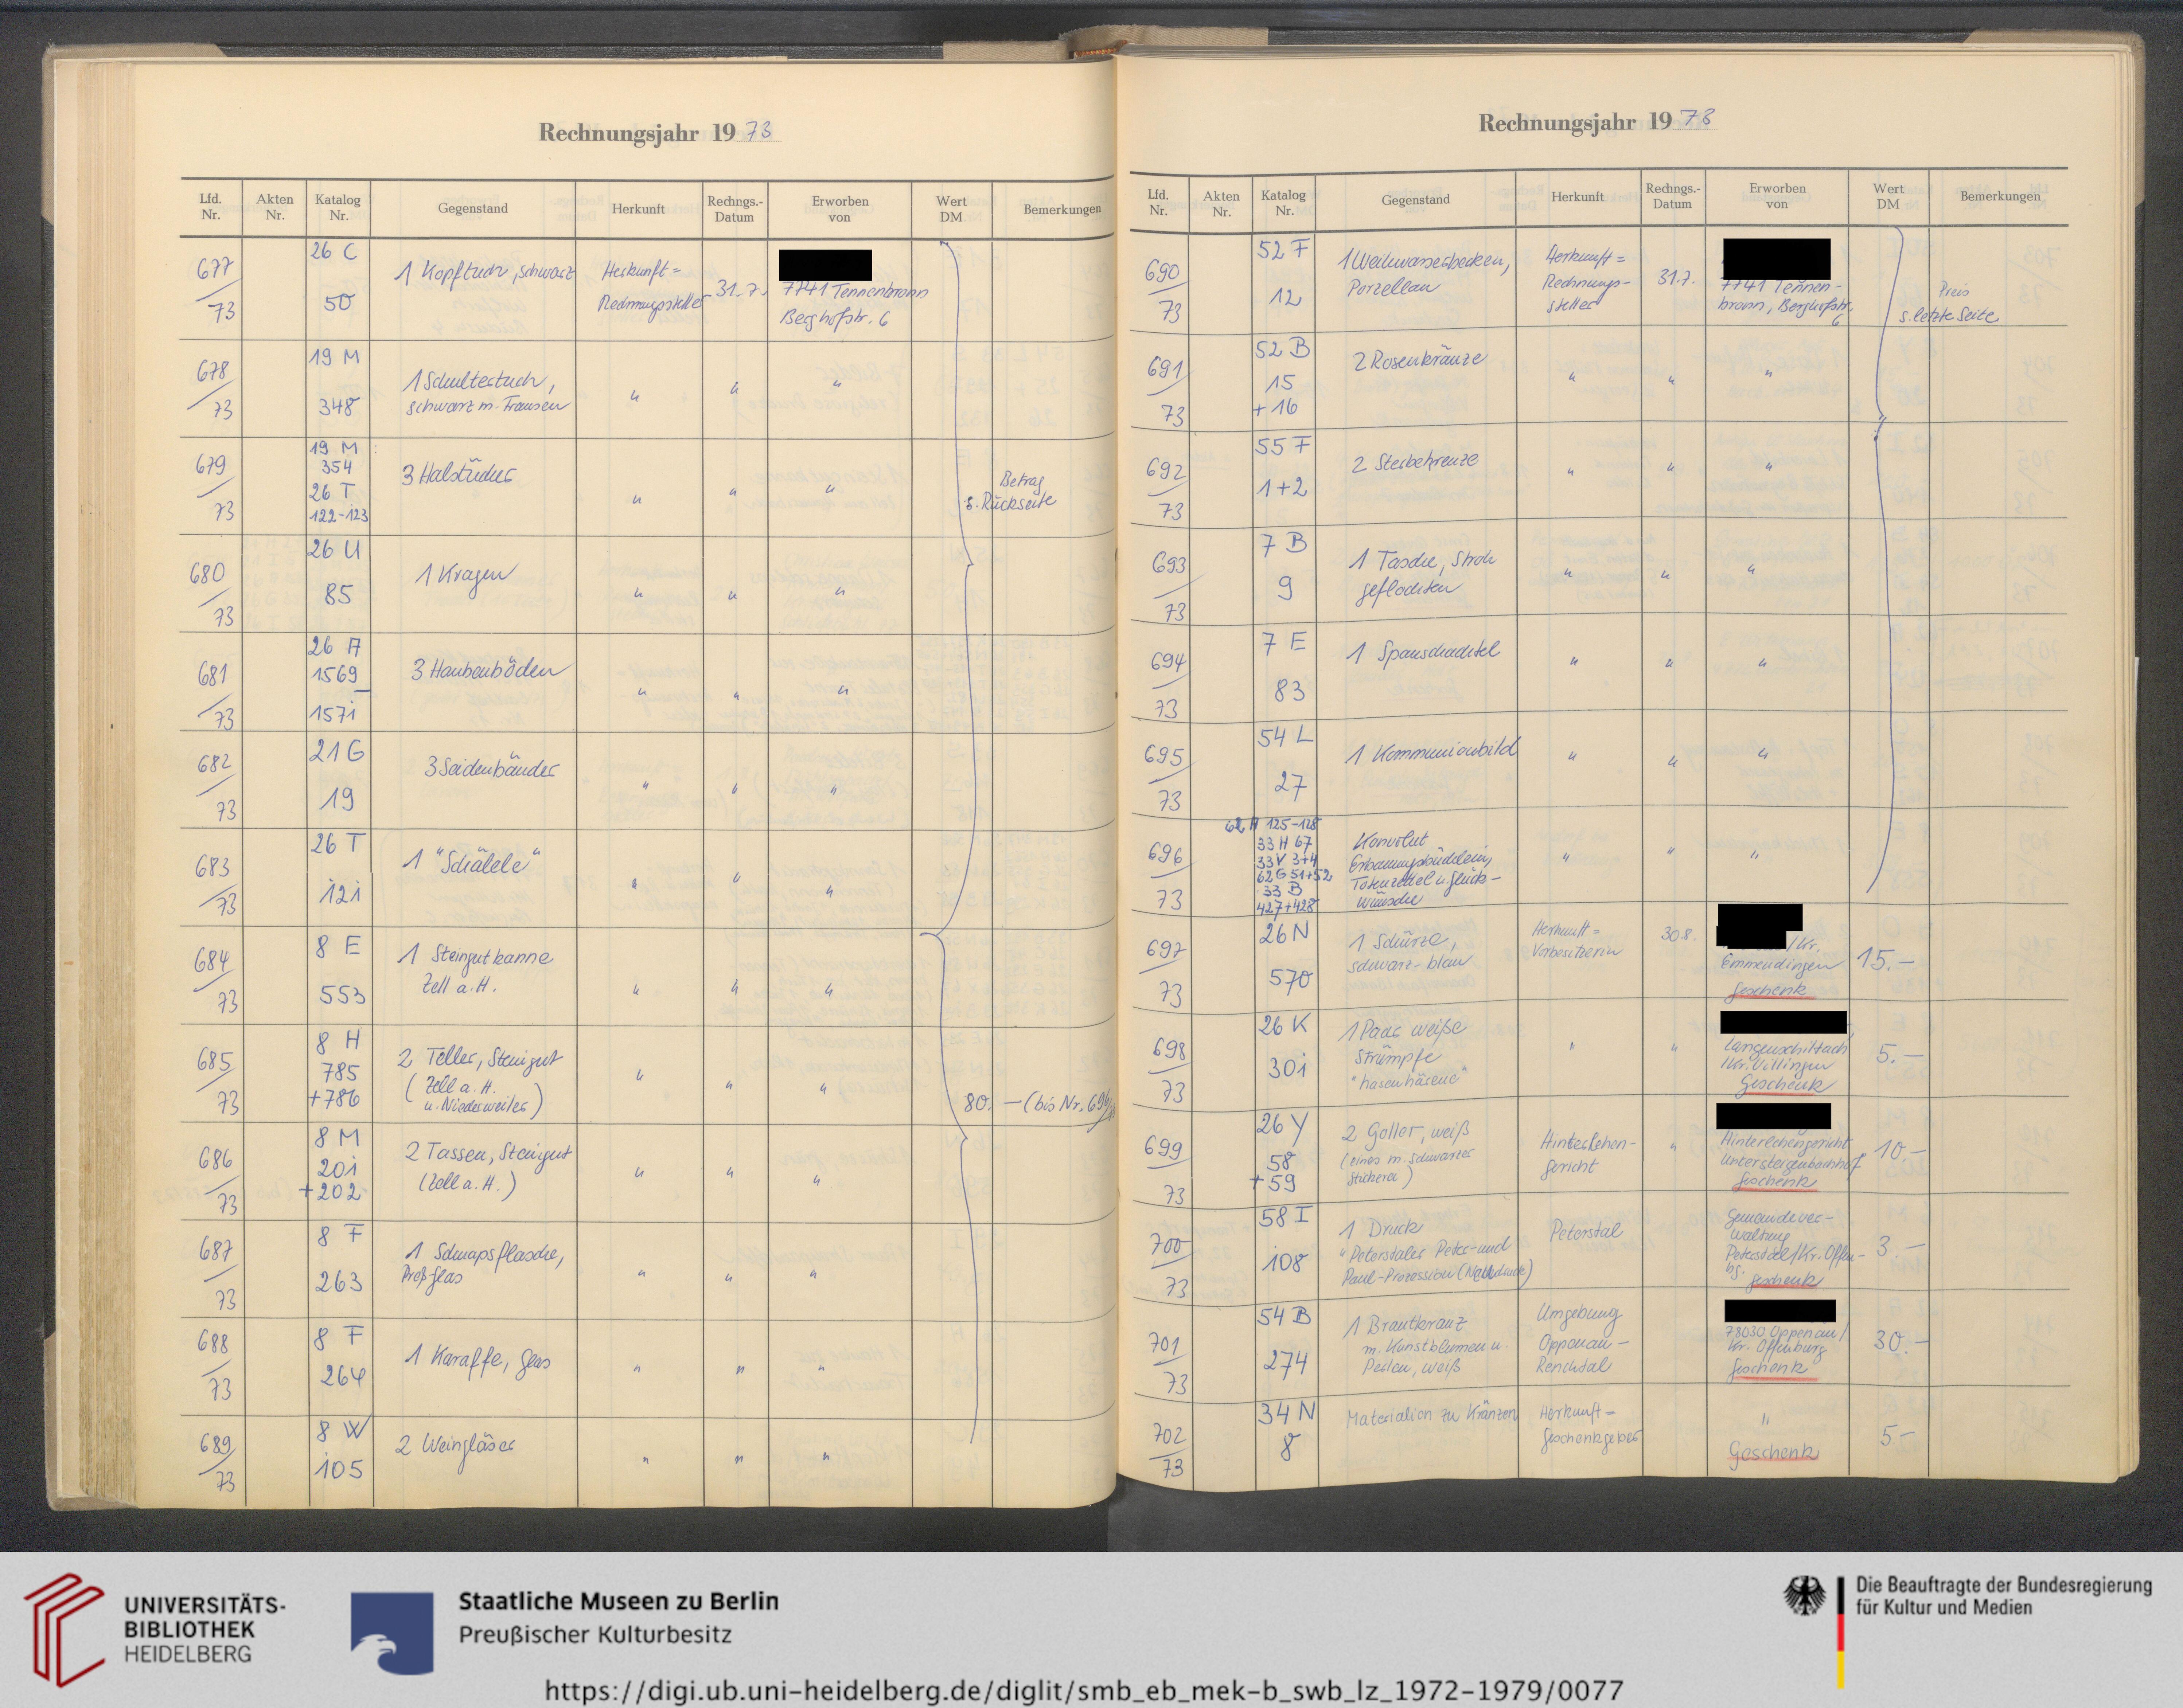 Rechnungsjahr 19 73
Lfd. Nr.
Akten Nr.
Katalog Nr.
Gegenstand
Herkunft
Rechngs.-Datum
Erworben von
Wert DM
Bemerkungen
677/73
26 C
50
1 Kopftuch, schwarz
Herkunft =
Rechnungssteller
31.7.
7741 Tennenbronn
Berghofstr. 6
678/73
19 M
348
1 Schultertuch,
schwarz m. Fransen
" " "
679/73
19 M
354
26 T
122-123
3 Halstücher
" " "
Betrag
s. Rückseite
680/73
26 U
85
1 Kragen
" " "
681/73
26 A
1569 –
1571
3 Haubenböden
" " "
682/73
21 G
19
3 Seidenbänder
" " "
683/73
26 T
121
1 "Schälele"
" " "
684/73
8 E
553
1 Steingutkanne
Zell a. H.
" " "
685/73
8 H
785
+786
2 Teller, Steingut
(Zell a. H.
u. Niederweiler)
" " "
80.—(bis Nr. 696/73
686/73
8 M
201
+202
2 Tassen, Steingut
(Zell a. H.)
" " "
687/73
8 F
263
1 Schnapsflasche,
Preßglas
" " "
688/73
8 F
264
1 Karaffe, Glas
" " "
689/73
8 W
105
2 Weingläser
" " "
Rechnungsjahr 19 73
Lfd. Nr.
Akten Nr.
Katalog Nr.
Gegenstand
Herkunft
Rechngs.-Datum
Erworben von
Wert DM
Bemerkungen
690/73
52 F
12
1 Weihwasserbecken,
Porzellan
Herkunft =
Rechnungs-
steller
31.7.
7741 Tennen-
bronn, Berghofstr.
6
Preis
s. letzte Seite
691/73
52 B
15
+ 16
2 Rosenkränze
" " "
692/73
55 F
1+2
2 Sterbekreuze
" " "
693/73
7 B
9
1 Tasche, Stroh
geflochten
" " "
694/73
7 E
83
1 Spanschachtel
" " "
695/73
54 L
27
1 Kommunionbild
" " "
696/73
62 H 125-128
33 H 67
33 V 3+4
62 G 51+52
33 B
427+428
Konvolut
Erbauungsbüchlein,
Totenzettel u. Glück-
wünsche
" " "
697/73
26 N
570
1 Schürze,
schwarz-blau
Herkunft =
Vorbesitzerin
30.8.
/Kr.
Emmendingen
Geschenk
15.—
698/73
26 K
301
1 Paar weiße
Strümpfe
"hasenhärene"
" "
Langenschiltach
/Kr. Villingen
Geschenk
5.—
699/73
26 Y
58
+ 59
2 Goller, weiß
(eines m. schwarzer
Stickerei)
Hinterlehen-
gericht
"
Hinterlehengericht
Untersteigenbachhof
Geschenk
10.—
700/73
58 I
108
1 Druck
"Petersaler Peter- und
Paul-Prozession (Neudruck)
Peterstal
Gemeindever-
waltung
Peterstal/Kr. Offen-
bg.
Geschenk
3.—
701/73
54 B
274
1 Brautkranz
m. Kunstblumen u.
Perlen, weiß
Umgebung
Oppenau-
Renchtal
78030 Oppenau/
Kr. Offenburg
Geschenk
30.—
702/73
34 N
8
Materialien zu Kränzen
Herkunft =
Geschenkgeber
"
Geschenk
5—
UNIVERSITÄTS-
BIBLIOTHEK
HEIDELBERG
Staatliche Museen zu Berlin
Preußischer Kulturbesitz
Die Beauftragte der Bundesregierung
für Kultur und Medien
https://digi.ub.uni-heidelberg.de/diglit/smb_eb_mek-b_swb_lz_1972-1979/0077